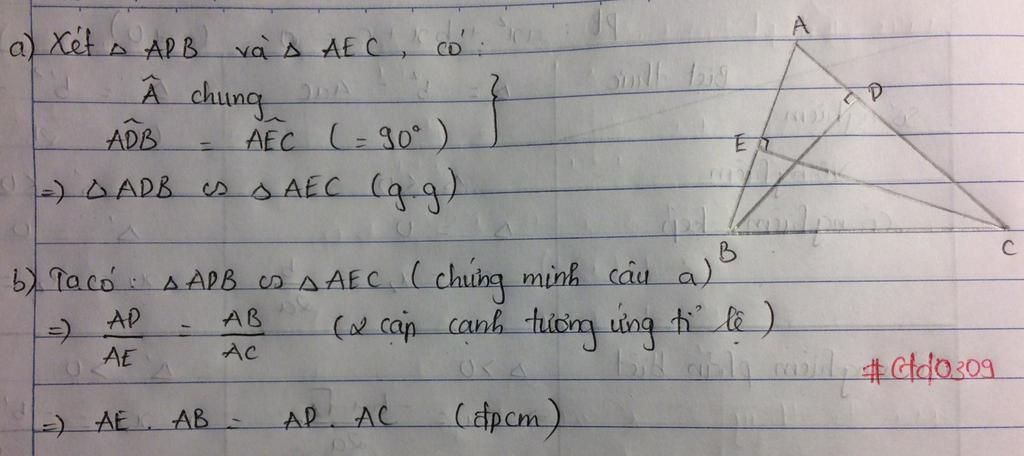 a) Xét △ ADB và △ AEC, có:
Â chung
ADB^ = AEC^ (= 90°) }
=> △ ADB ∽ △ AEC (g.g)
b) Ta có: △ ADB ∽ △ AEC (chứng minh câu a)
=> AD/AE = AB/AC (2 cặp cạnh tương ứng tỉ lệ)
=> AE . AB = AD . AC (đpcm)
A
D
E
B
C